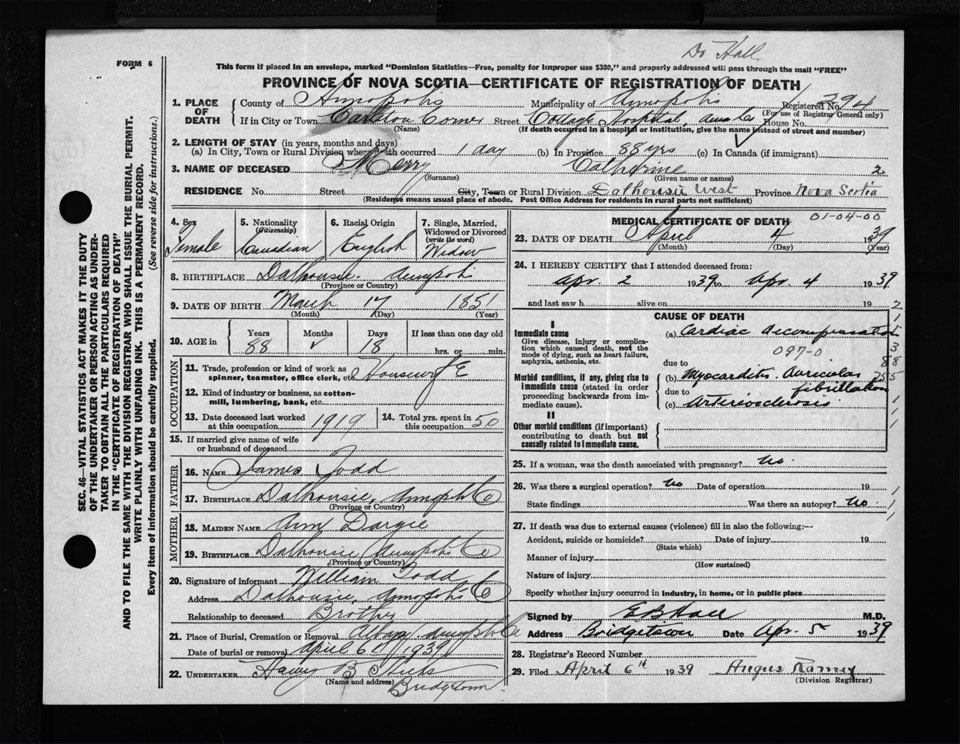 Dr Hall
FORM 6
This form if placed in an envelope, marked "Dominion Statistics—Free, penalty for improper use $300," and properly addressed will pass through the mail "FREE"
PROVINCE OF NOVA SCOTIA—CERTIFICATE OF REGISTRATION OF DEATH
SEC. 46—VITAL STATISTICS ACT MAKES IT THE DUTY
OF THE UNDERTAKER OR PERSON ACTING AS UNDER-
TAKER TO OBTAIN ALL THE PARTICULARS REQUIRED
IN THE "CERTIFICATE OF REGISTRATION OF DEATH"
AND TO FILE THE SAME WITH THE DIVISION REGISTRAR WHO SHALL ISSUE THE BURIAL PERMIT.
WRITE PLAINLY WITH UNFADING INK. THIS IS A PERMANENT RECORD.
Every item of information should be carefully supplied. (See reverse side for instructions.)
1. PLACE OF DEATH County of Annapolis Municipality of Annapolis Registered No. 294
(For use of Registrar General only)
If in City or Town Carleton Corner Street Cottage Hospital, Anna Co House No.
(Name) (If death occurred in a hospital or institution, give the name instead of street and number)
2. LENGTH OF STAY (in years, months and days)
(a) In City, Town or Rural Division where death occurred 1 day (b) In Province 88 yrs (c) In Canada (if immigrant)
3. NAME OF DECEASED Merry Catherine 2
(Surname) (Given name or names)
RESIDENCE No. Street City, Town or Rural Division Dalhousie West Province Nova Scotia
(Residence means usual place of abode. Post Office Address for residents in rural parts not sufficient)
4. Sex 5. Nationality (Citizenship) 6. Racial Origin 7. Single, Married, Widowed or Divorced (write the word)
Female Canadian English Widow
8. BIRTHPLACE Dalhousie. Annapolis
(Province or Country)
9. DATE OF BIRTH March 17 1851
(Month) (Day) (Year)
10. AGE in Years Months Days If less than one day old
88 ✓ 18 hrs. or min.
OCCUPATION
11. Trade, profession or kind of work as
spinner, teamster, office clerk, etc. Housewife
12. Kind of industry or business, as cotton-
mill, lumbering, bank, etc.
13. Date deceased last worked
at this occupation 1919 14. Total yrs. spent in 50
15. If married give name of wife
or husband of deceased
FATHER
16. NAME James Todd
17. BIRTHPLACE Dalhousie, Annapolis Co
(Province or Country)
MOTHER
18. MAIDEN NAME Ann Dargie
19. BIRTHPLACE Dalhousie, Annapolis Co
(Province or Country)
20. Signature of informant William Todd
Address Dalhousie, Annapolis Co
Relationship to deceased Brother
21. Place of Burial, Cremation or Removal Annapolis Co
Date of burial or removal April 6 1939
22. UNDERTAKER B Hicks
(Name and address) Bridgetown
MEDICAL CERTIFICATE OF DEATH
01-04-00
23. DATE OF DEATH April 4 1939
(Month) (Day) (Year)
24. I HEREBY CERTIFY that I attended deceased from:
Apr. 2 1939 to Apr. 4 1939
and last saw h alive on 19
CAUSE OF DEATH
I
Immediate cause
Give disease, injury or complica-
tion which caused death, not the
mode of dying, such as heart failure,
asphyxia, asthenia, etc.
(a) Cardiac decompensation
097-0
due to
Morbid conditions, if any, giving rise to
immediate cause (stated in order
proceeding backwards from im-
mediate cause).
(b) Myocarditis. Auricular
fibrillation
due to
(c) Arteriosclerosis.
II
Other morbid conditions (if important)
contributing to death but not
causally related to immediate cause.
25. If a woman, was the death associated with pregnancy? no.
26. Was there a surgical operation? no Date of operation 19
State findings Was there an autopsy? no.
27. If death was due to external causes (violence) fill in also the following:—
Accident, suicide or homicide? Date of injury 19
(State which)
Manner of injury
(How sustained)
Nature of injury
Specify whether injury occurred in industry, in home, or in public place
Signed by E B Hall M.D.
Address Bridgetown Date Apr. 5 1939
28. Registrar's Record Number
29. Filed April 6th 1939 Angus Ramey
(Division Registrar)